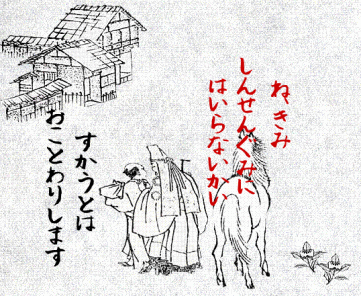 ねぇきみ
しんせんぐみに
はいらないかい
すかうとは
おことわりします